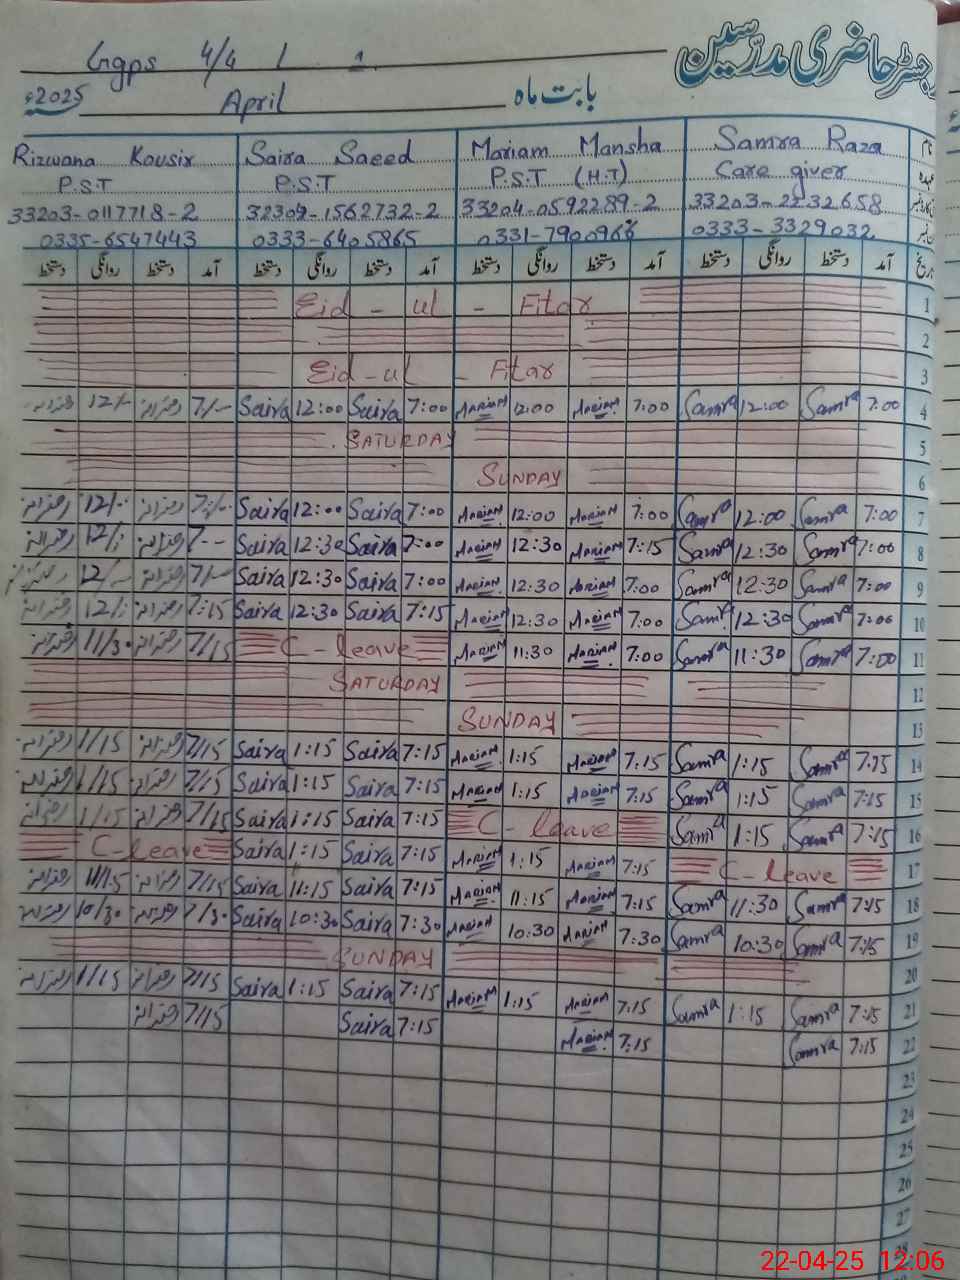 رجسٹر حاضری مدرّسین
Ggps 4/4 / 1
بابت ماہ April 2025ء
Rizwana Kousir Saira Saeed Mariam Mansha Samra Raza نام
P.S.T P.S.T P.S.T (H.T) Care giver عہدہ
33203-0117718-2 32304-1562732-2 33204-0592289-2 33203-2232658
0335-6547443 0333-6405865 0331-7900966 0333-3329032
دستخط روانگی دستخط آمد دستخط روانگی دستخط آمد دستخط روانگی دستخط آمد دستخط روانگی دستخط آمد تاریخ
Eid - ul - Fitar 1
2
Eid - ul - Fitar 3
12/- 7/- Saira 12:00 Saira 7:00 Mariam 12:00 Mariam 7:00 Samra 12:00 Samra 7:00 4
SATURDAY 5
SUNDAY 6
12/- 7/- Saira 12:00 Saira 7:00 Mariam 12:00 Mariam 7:00 Samra 12:00 Samra 7:00 7
12/- 7-- Saira 12:30 Saira 7:00 Mariam 12:30 Mariam 7:15 Samra 12:30 Samra 7:00 8
12/- 7/- Saira 12:30 Saira 7:00 Mariam 12:30 Mariam 7:00 Samra 12:30 Samra 7:00 9
12/- 7:15 Saira 12:30 Saira 7:15 Mariam 12:30 Mariam 7:00 Samra 12:30 Samra 7:00 10
11/30 7/15 C-leave Mariam 11:30 Mariam 7:00 Samra 11:30 Samra 7:00 11
SATURDAY 12
SUNDAY 13
1/15 7/15 Saira 1:15 Saira 7:15 Mariam 1:15 Mariam 7:15 Samra 1:15 Samra 7:15 14
1/15 7/15 Saira 1:15 Saira 7:15 Mariam 1:15 Mariam 7:15 Samra 1:15 Samra 7:15 15
1/15 7/15 Saira 1:15 Saira 7:15 C-leave Samra 1:15 Samra 7:15 16
C-leave Saira 1:15 Saira 7:15 Mariam 1:15 Mariam 7:15 C-leave 17
11/15 7/15 Saira 11:15 Saira 7:15 Mariam 11:15 Mariam 7:15 Samra 11:30 Samra 7:15 18
10/30 7/30 Saira 10:30 Saira 7:30 Mariam 10:30 Mariam 7:30 Samra 10:30 Samra 7:15 19
SUNDAY 20
1/15 7/15 Saira 1:15 Saira 7:15 Mariam 1:15 Mariam 7:15 Samra 1:15 Samra 7:15 21
7/15 Saira 7:15 Mariam 7:15 Samra 7:15 22
23
24
25
26
27
28
22-04-25 12:06